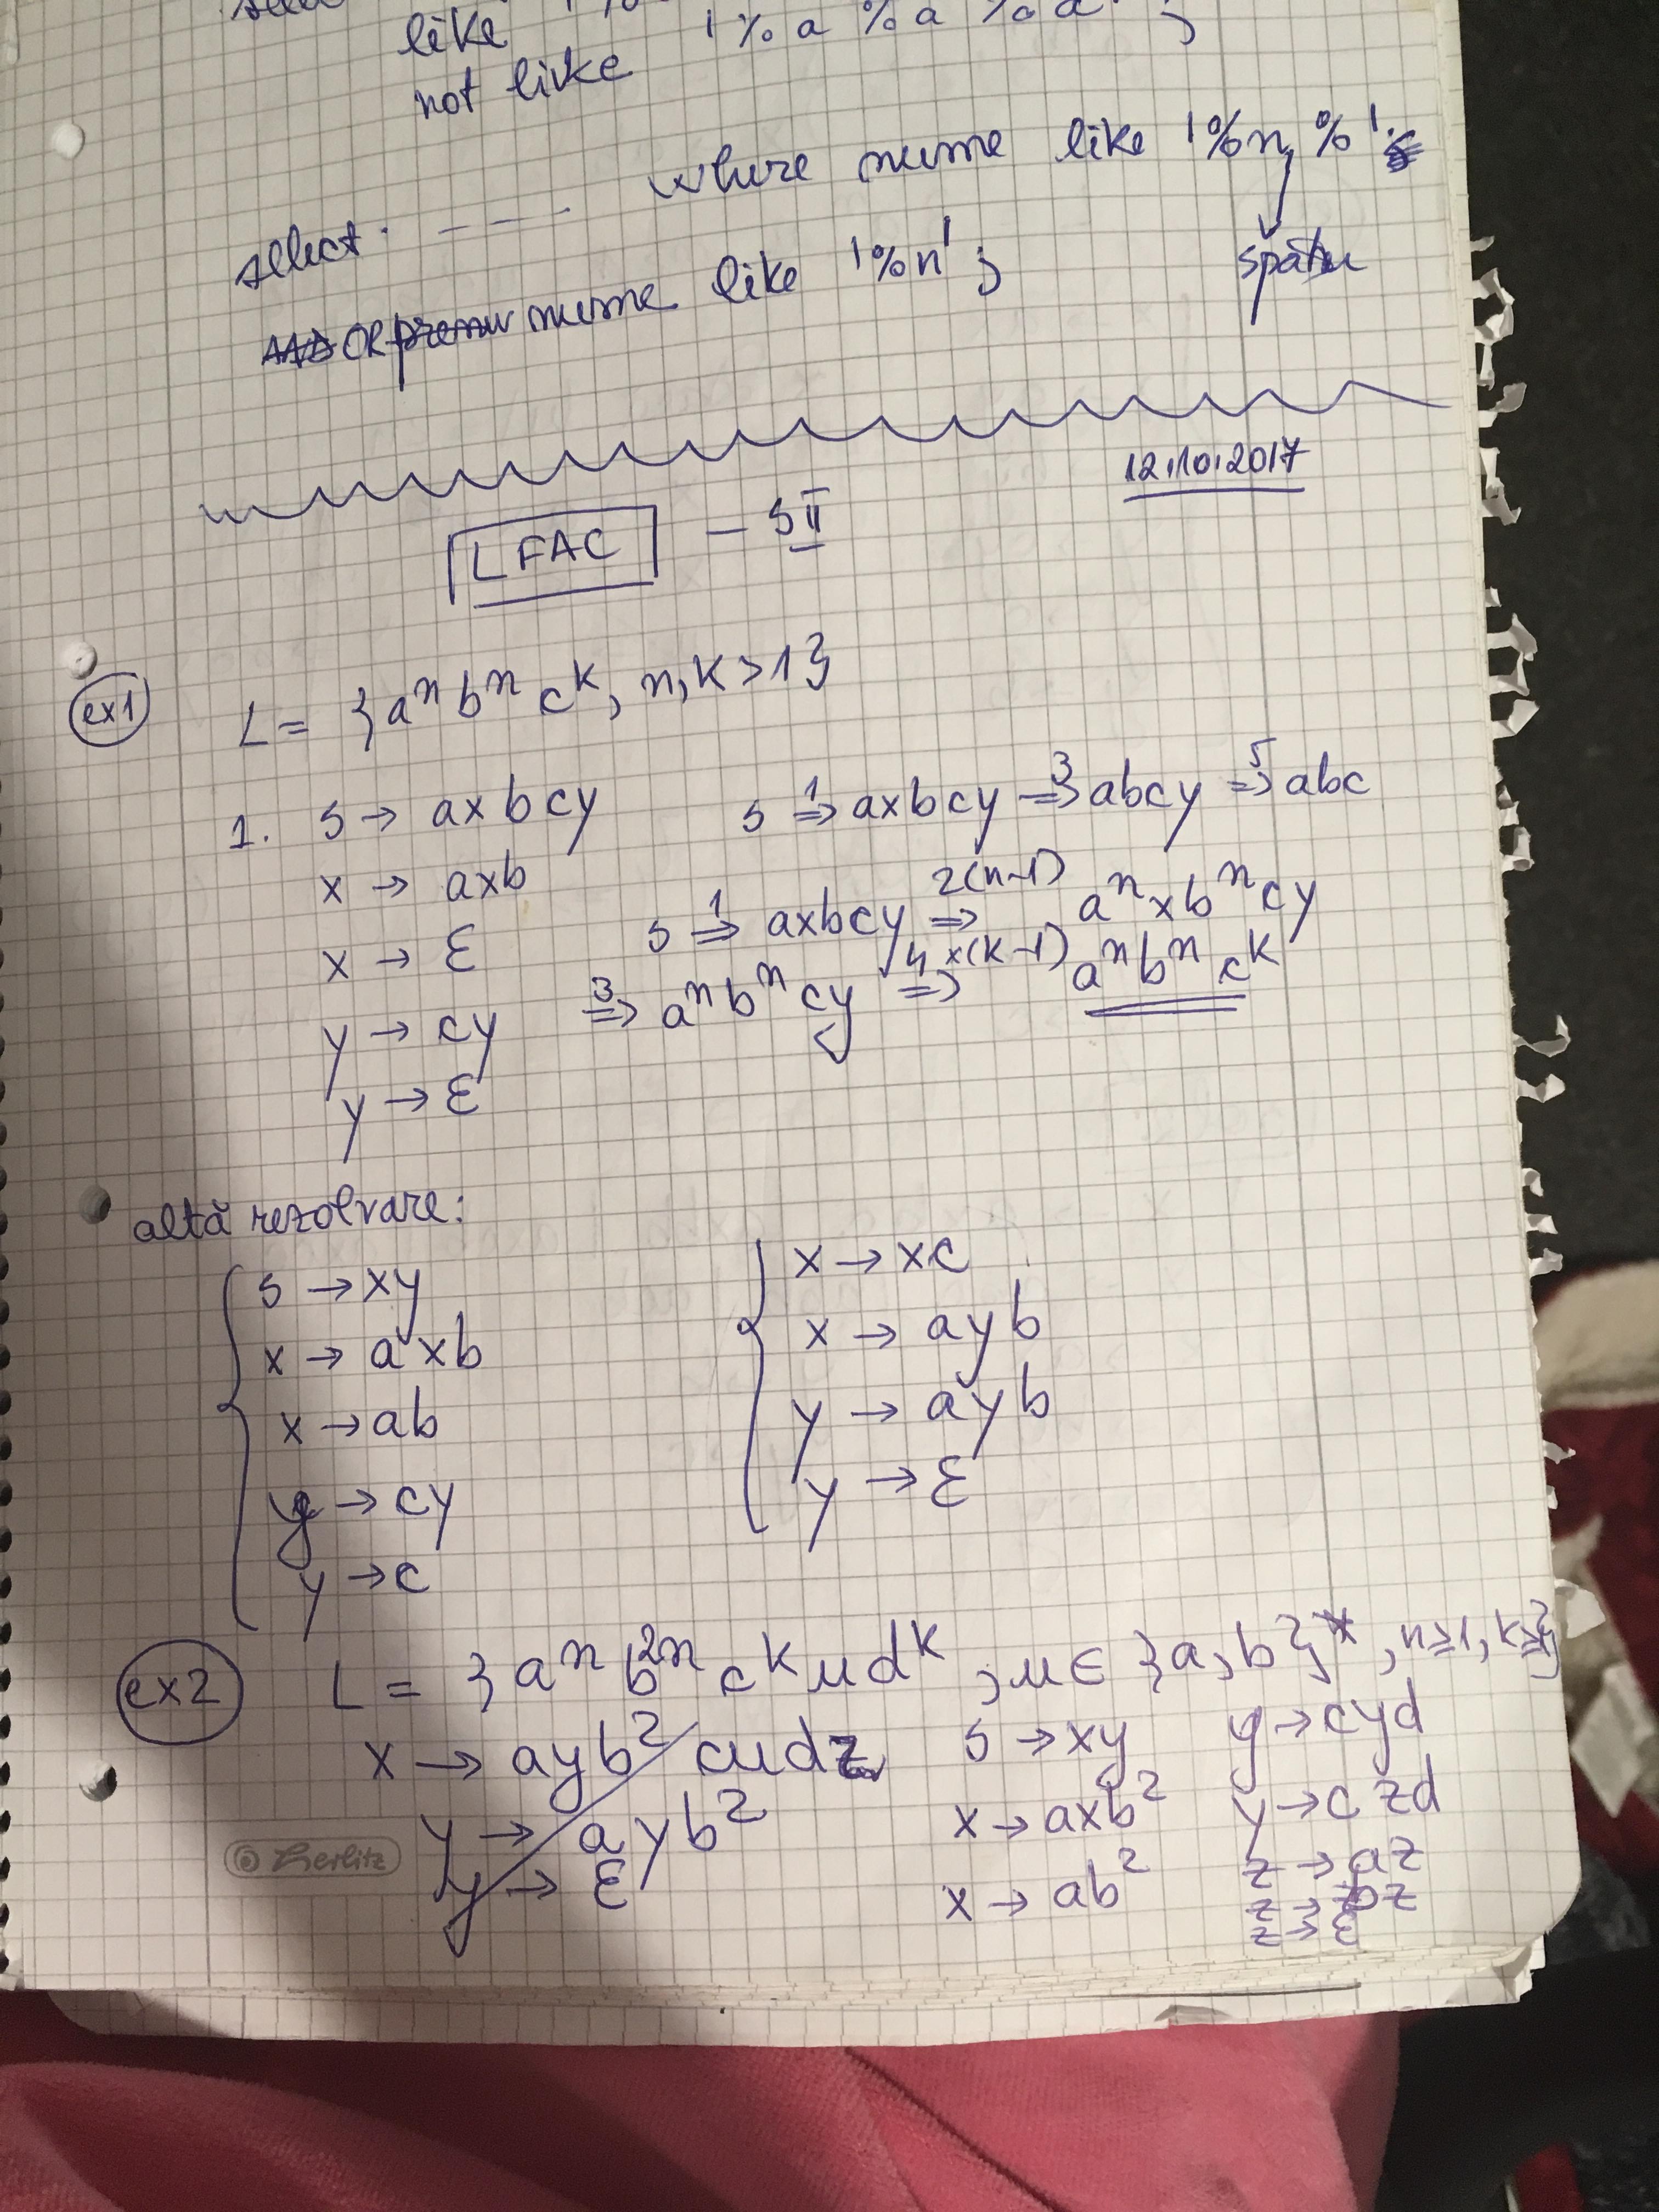 like '%a%a%a%';
not like
select ---- where nume like '%n %';
spațiu
OR nume like '%n';
12.10.2017
LFAC - SII
ex1 L = {aⁿbⁿcᵏ, n,k>1}
1. S → axbcy
x → axb
x → ε
y → cy
y → ε
S ⇒¹ axbcy ⇒³ abcy ⇒⁵ abc
S ⇒¹ axbcy ⇒²⁽ⁿ⁻¹⁾ aⁿxbⁿcy
⇒³ aⁿbⁿcy ⇒⁴ˣ⁽ᵏ⁻¹⁾ aⁿbⁿcᵏ
altă rezolvare:
S → xy
x → axb
x → ab
y → cy
y → c
x → xc
x → ayb
y → ayb
y → ε
ex2 L = {aⁿb²ⁿcᵏudᵏ, u∈{a,b}*, n≥1, k≥1}
x → ayb² cudz
y → ayb²
y → ε
S → xy
x → axb²
x → ab²
y → cyd
y → czd
z → az
z → bz
z → ε
© Herlitz